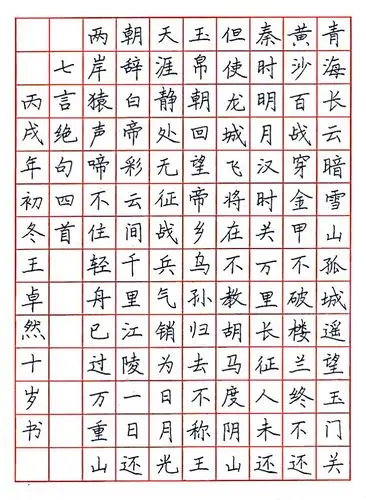 青海长云暗雪山孤城遥望玉门关
黄沙百战穿金甲不破楼兰终不还
秦时明月汉时关万里长征人未还
但使龙城飞将在不教胡马度阴山
玉帛朝回望帝乡乌孙归去不称王
天涯静处无征战兵气销为日月光
朝辞白帝彩云间千里江陵一日还
两岸猿声啼不住轻舟已过万重山
七言绝句四首
丙戌年初冬王卓然十岁书